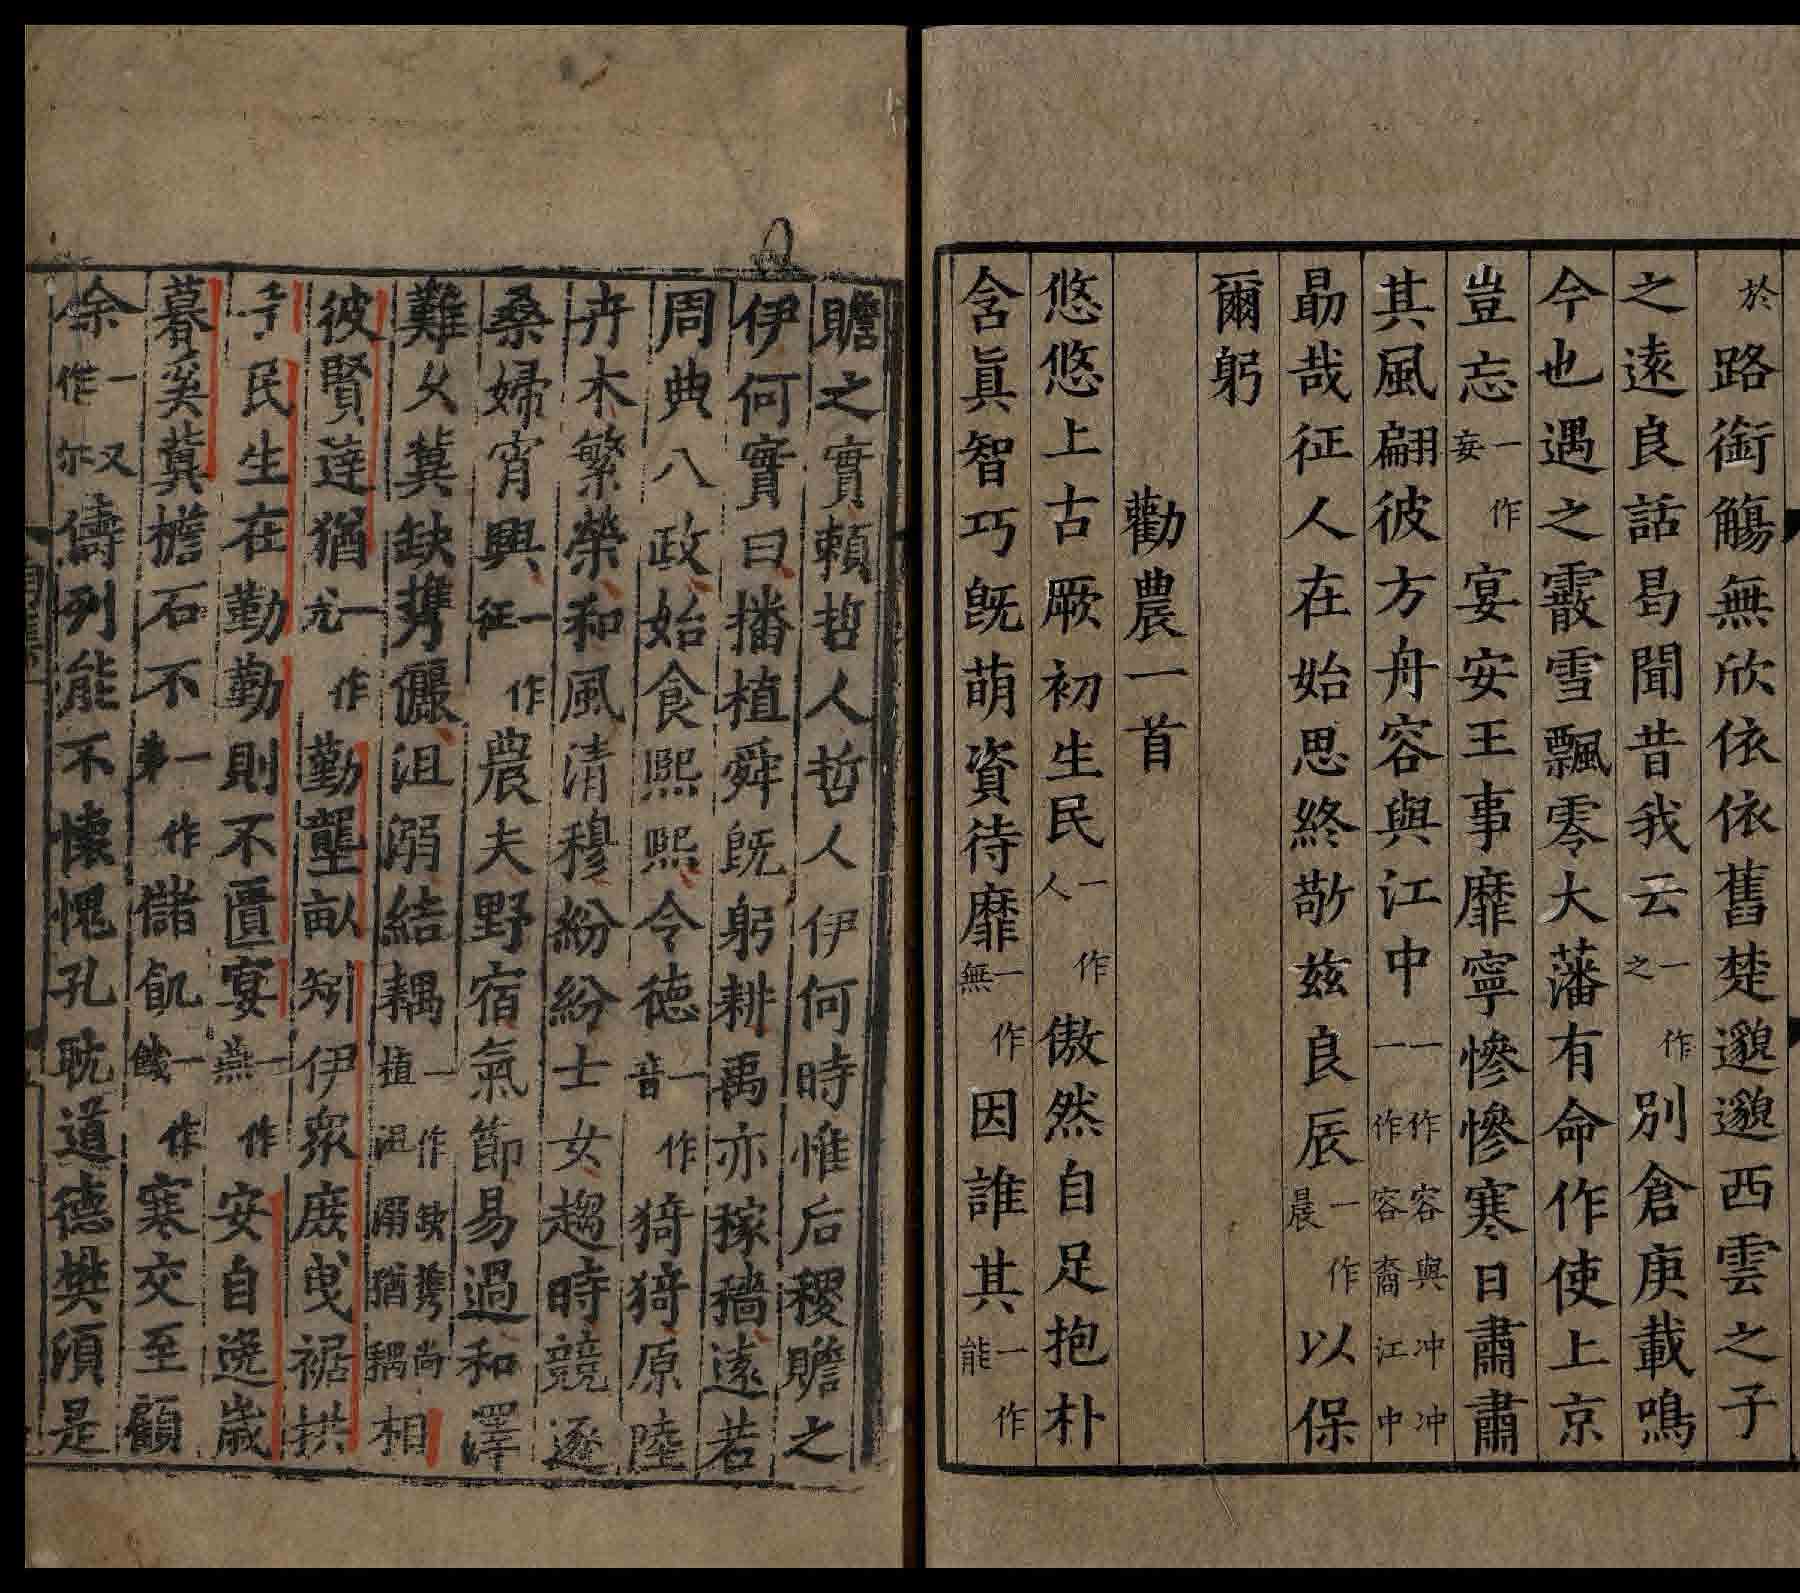 於路銜觴無欣依依舊楚邈邈西雲之子
之遠良話曷聞昔我云一作之別倉庚載鳴
今也遇之霰雪飄零大藩有命作使上京
豈忘一作妄宴安王事靡寧慘慘寒日肅肅
其風翩彼方舟容與江中一作容與冲冲一作容裔江中
勗哉征人在始思終敬茲良辰一作晨以保
爾躬
勸農一首
悠悠上古厥初生民一作人傲然自足抱朴
含眞智巧旣萌資待靡一作無因誰其一作能
贍之實賴哲人哲人伊何時惟后稷贍之
伊何實曰播植舜旣躬耕禹亦稼穡遠若
周典八政始食熙熙令德一作音猗猗原陸
卉木繁榮和風清穆紛紛士女趨時競逐
桑婦宵興一作征農夫野宿氣節易過和澤
難久冀缺攜儷沮溺結耦一作缺攜尚植沮溺猶耦相
彼賢達猶一作尤勤壟畝矧伊衆庶曳裾拱
手民生在勤勤則不匱宴一作燕安自逸歲
暮奚冀檐石不一作弗儲飢一作饑寒交至顧
余一作尔又儔列能不懷愧孔耽道德樊湏是